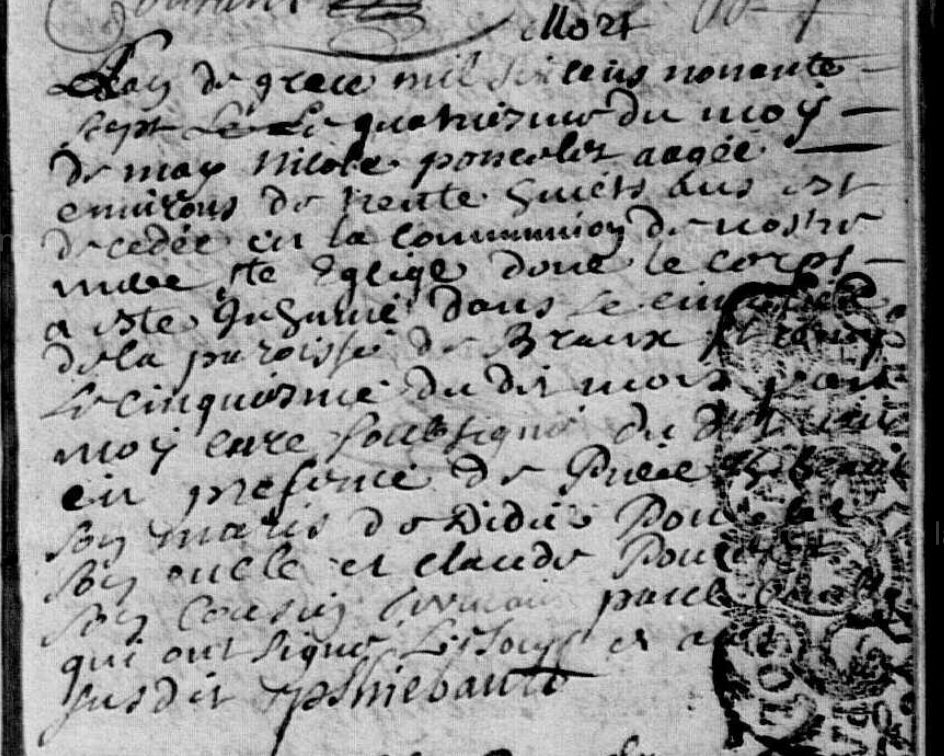 Mort
Lan de grace mil six cens nonante
sept Le quatriesme du moy
de may Nicole poncelet aagée
environs de trente huicts ans est
decedée en la communion de nostre
mere ste Eglige donc le corps
a este Inhumé dans le cimetiere
de la paroisse de Braux
le cinquiesme du dit mois par
moy cure soubsigné du dit
en presence de Piere
son maris de Didie
son oncle et claude
son cousin germain
qui ont signé Les jours et an
susdit
p thiebault